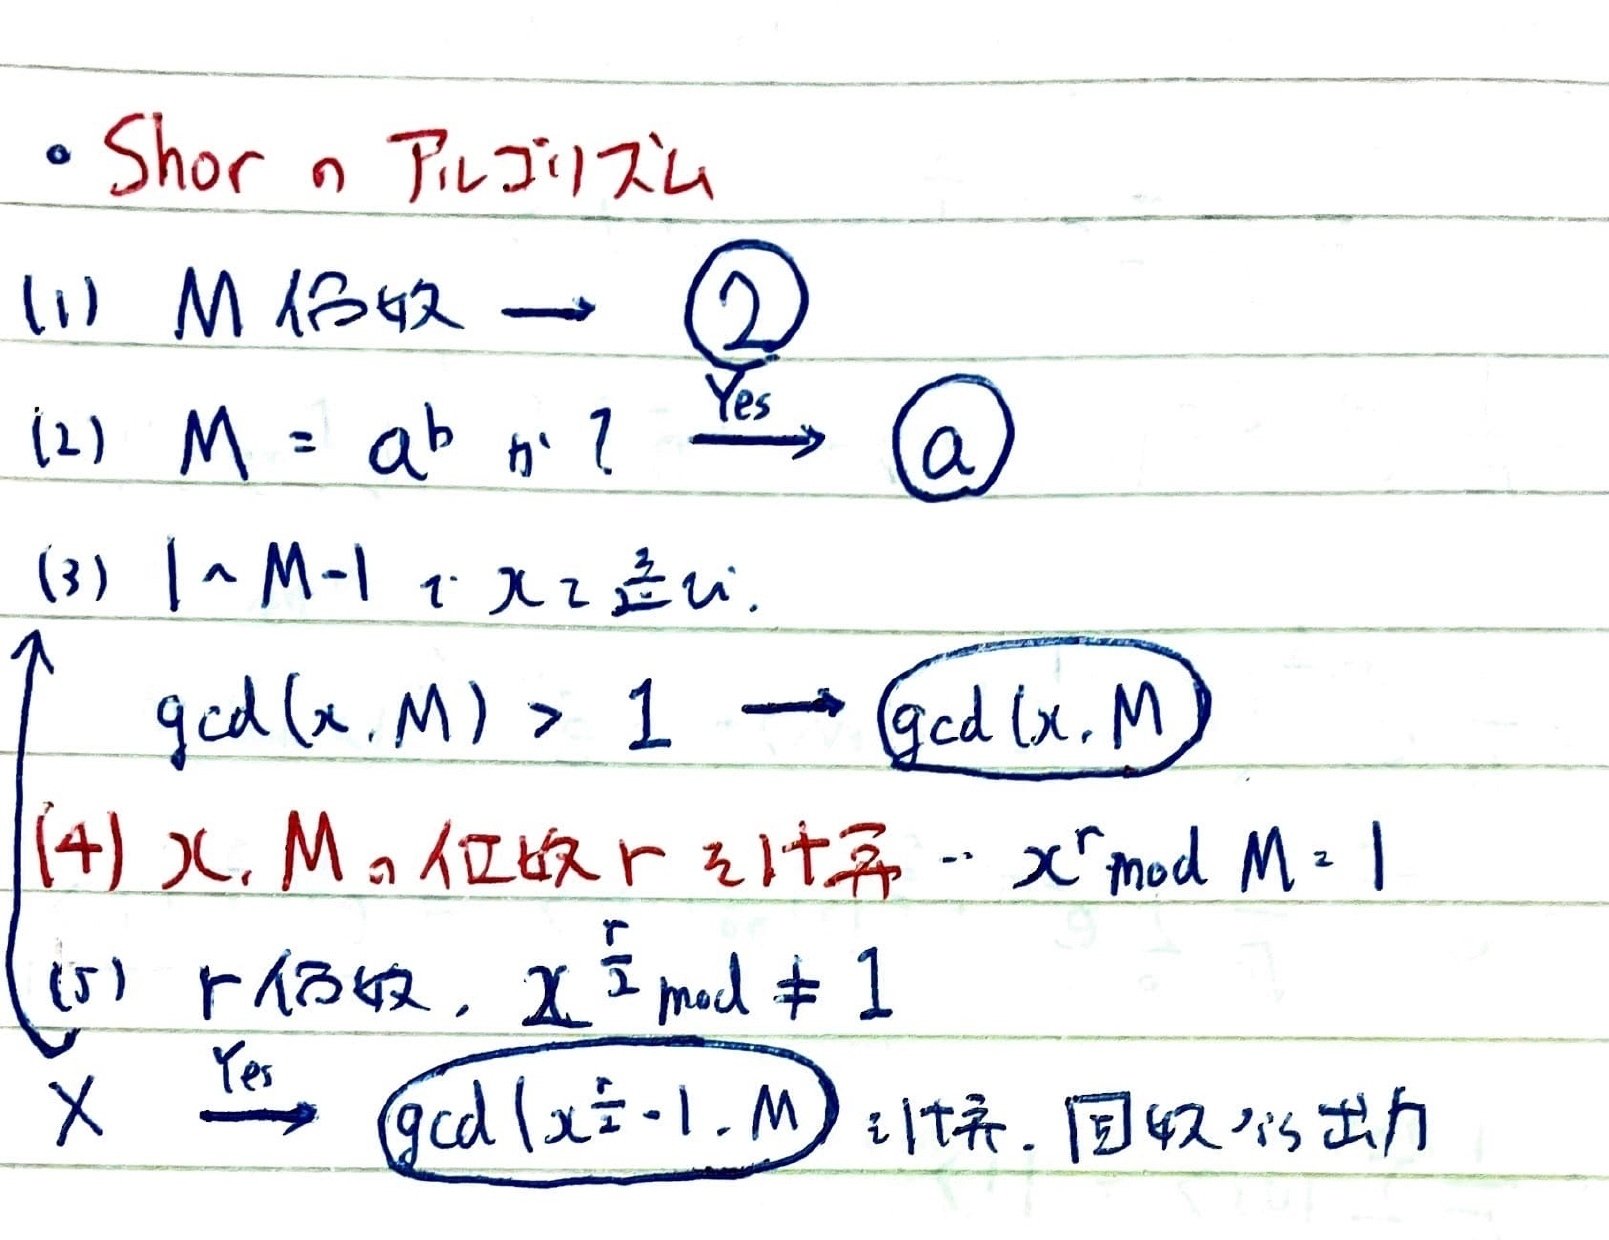 • Shor の アルゴリズム
(1) M 偶数 → 2
(2) M = a^b か? Yes → a
(3) 1 ~ M-1 で x を 選ぶ.
gcd(x, M) > 1 → gcd(x, M
(4) x, M の 位数 r を計算 ‥ x^r mod M = 1
(5) r 偶数, x^{r/2} mod ≠ 1
X Yes → gcd(x^{r/2} - 1, M) を計算. 因数なら出力